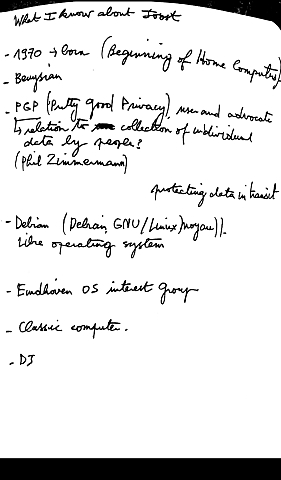 What I know about Joost
- 1970 → born (Beginning of Home Computers)
- Beuysian
- PGP (Pretty Good Privacy) user and advocate
↳ relation to collection of individual
data by people?
(Phil Zimmermann)
protecting data in transit
- Debian (Debian GNU/Linux)).
libre operating system
- Eindhoven OS interest group
- Classic computer.
- DJ